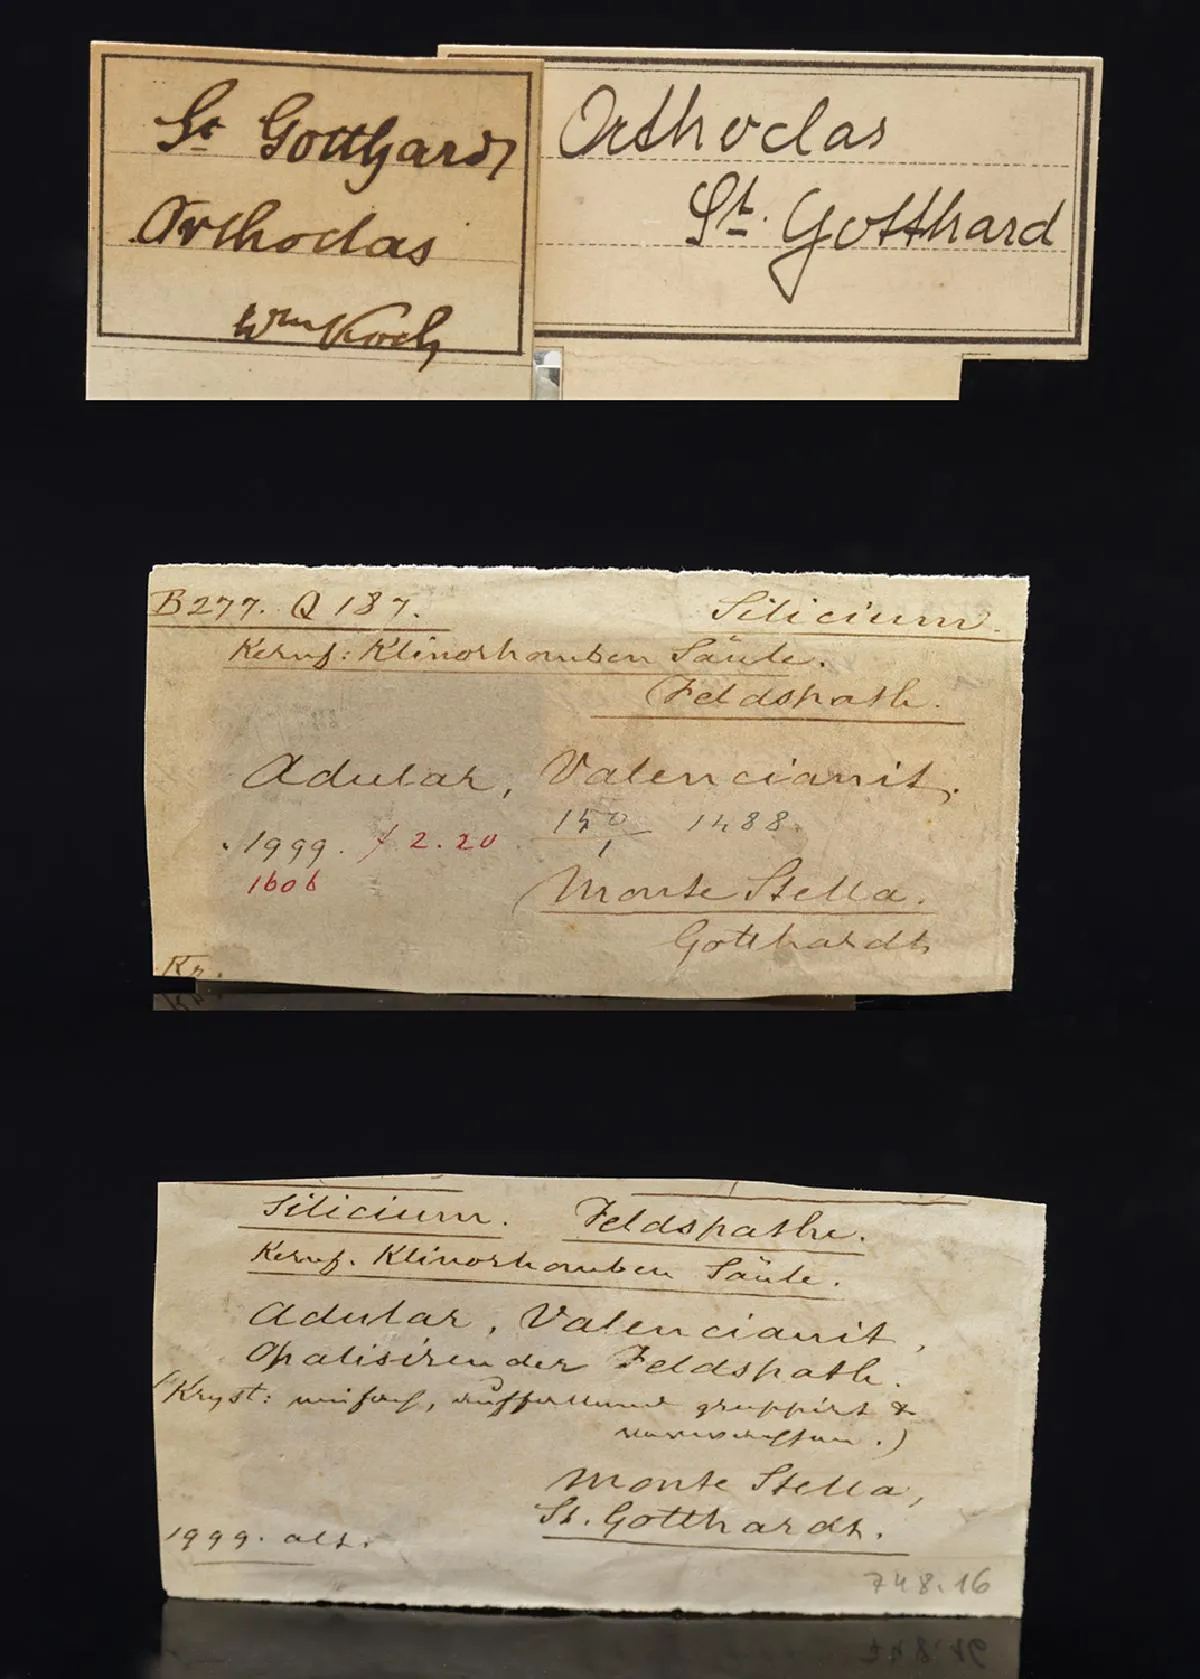 St Gotthard
Orthoclas
Wm Koch
Orthoclas
St. Gotthard
B277. Q187. Silicium.
Kernf: Klinorhomben Säule.
Feldspath.
Adular, Valencianit.
150 1488.
1
1999. 2.20
1606
Monte Stella.
Gotthardt
Kr.
Silicium. Feldspathe.
Kernf. Klinorhomben Säule.
Adular, Valencianit,
Opalisirender Feldspath.
(Kryst: einfach, auffallend gruppirt &
verwachsen.)
Monte Stella,
St. Gotthardt.
1999. alt.
748.16